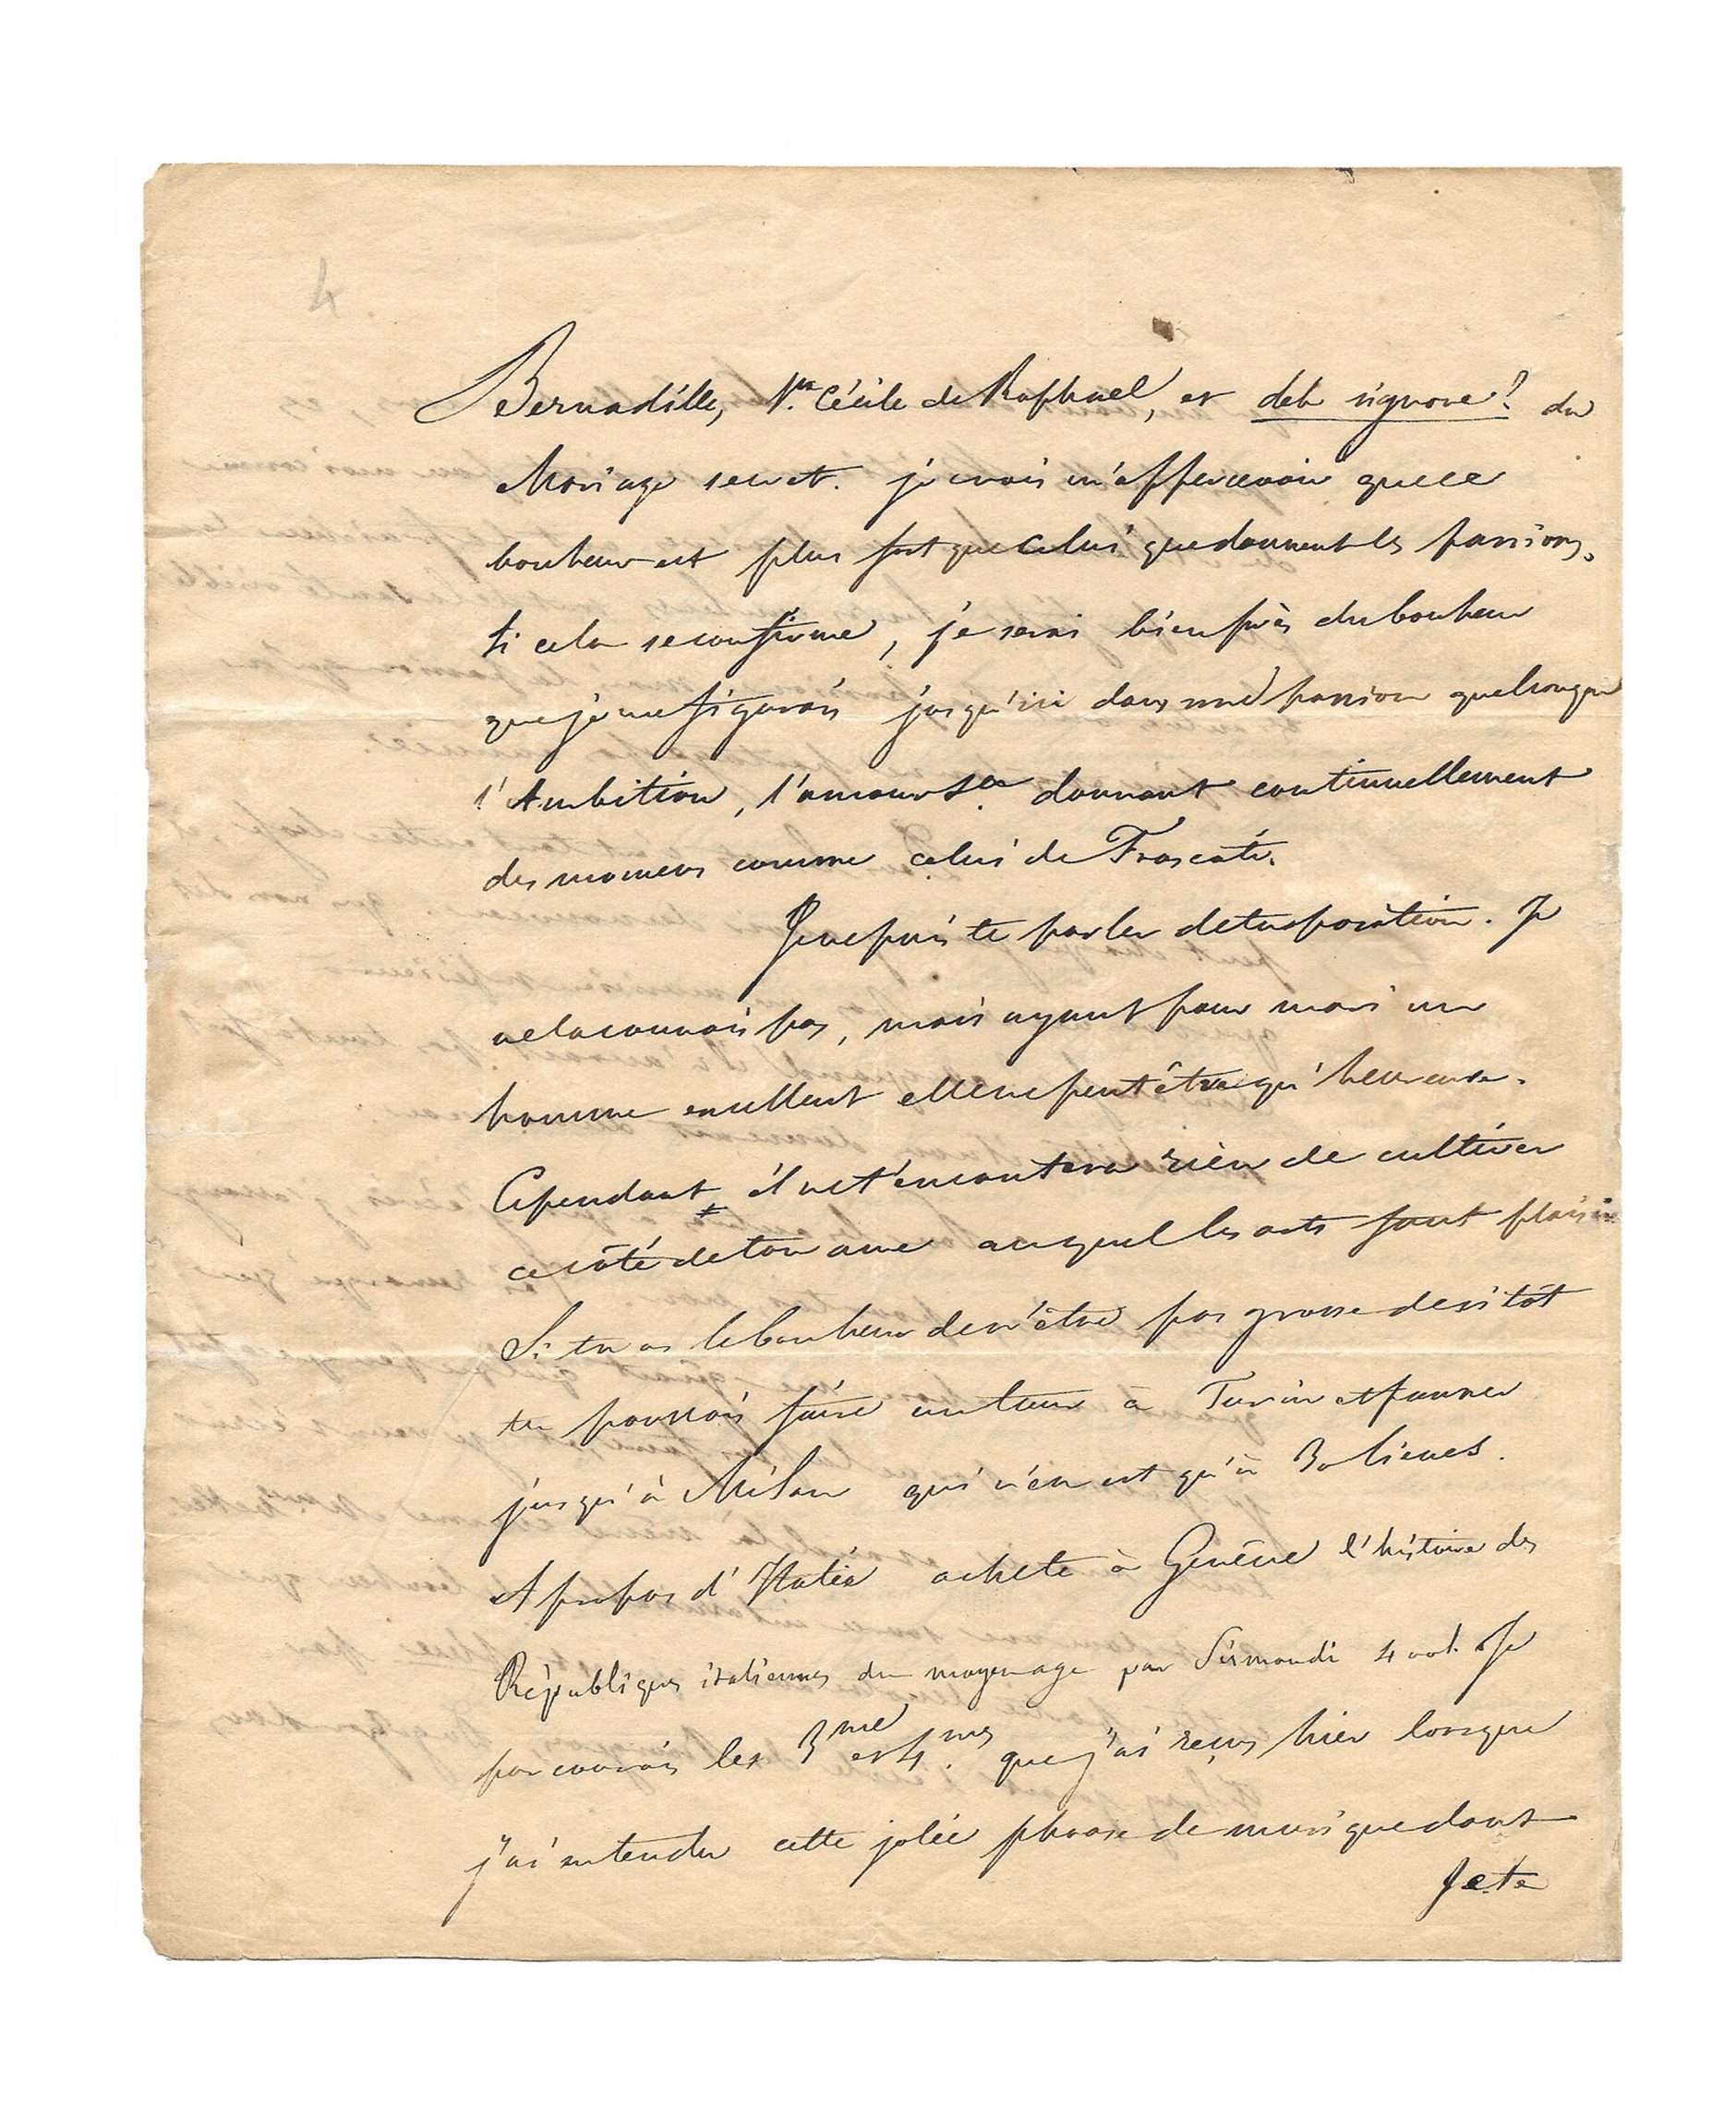 4
Bernadille, Ste. Cécile de Raphael, et deh signore! du
Mariage secret. je crois m'appercevoir que ce
bonheur est plus fort que celui que donnent les passions.
si cela se confirme, je serai bien près du bonheur
que je me figurais jusqu'ici dans une passion quelconque
l'Ambition, l'amour &a. donnant continuellement
des momens comme celui de Frascati.
Je ne puis te parler de ta position. Je
ne la connais pas, mais ayant pour mari un
homme excellent elle ne peut être qu'heureuse.
Cependant il ne t'en coutera rien de cultiver
ce côté de ton ame auquel les arts font plaisir
Si tu as le bonheur de n'être pas grosse de sitôt
tu pourrais faire un tour à Turin et pousser
jusqu'à Milan qui n'en est qu'à 30 lieues.
A propos d'Italie achete à Genêve l'histoire des
Républiques italiennes du moyen age par Sismondi 4 vol. Je
parcourais les 3me et 4me. que j'ai reçus hier lorsque
j'ai entendu cette jolie phrase de musique dont
Je te